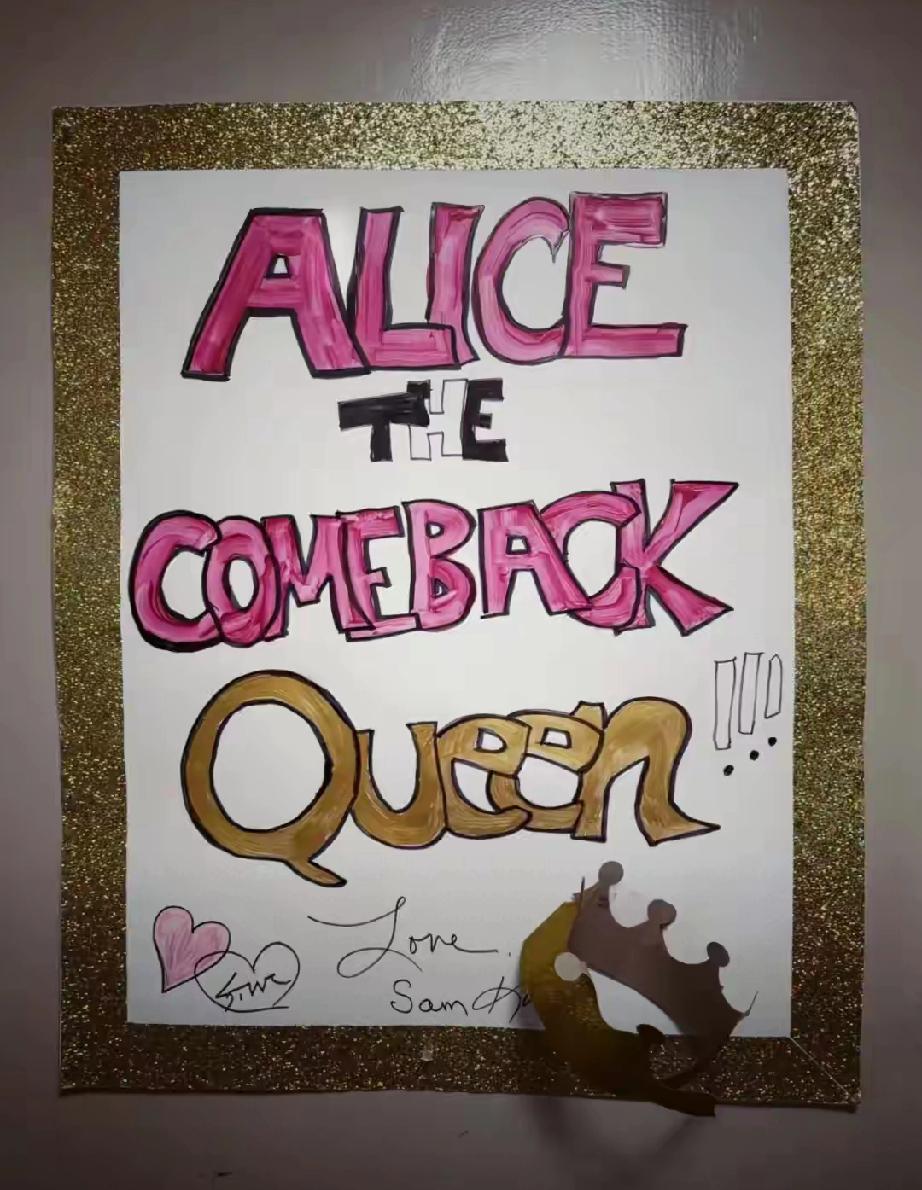 ALICE
THE
COMEBACK
Queen !!!
Love,
Sam